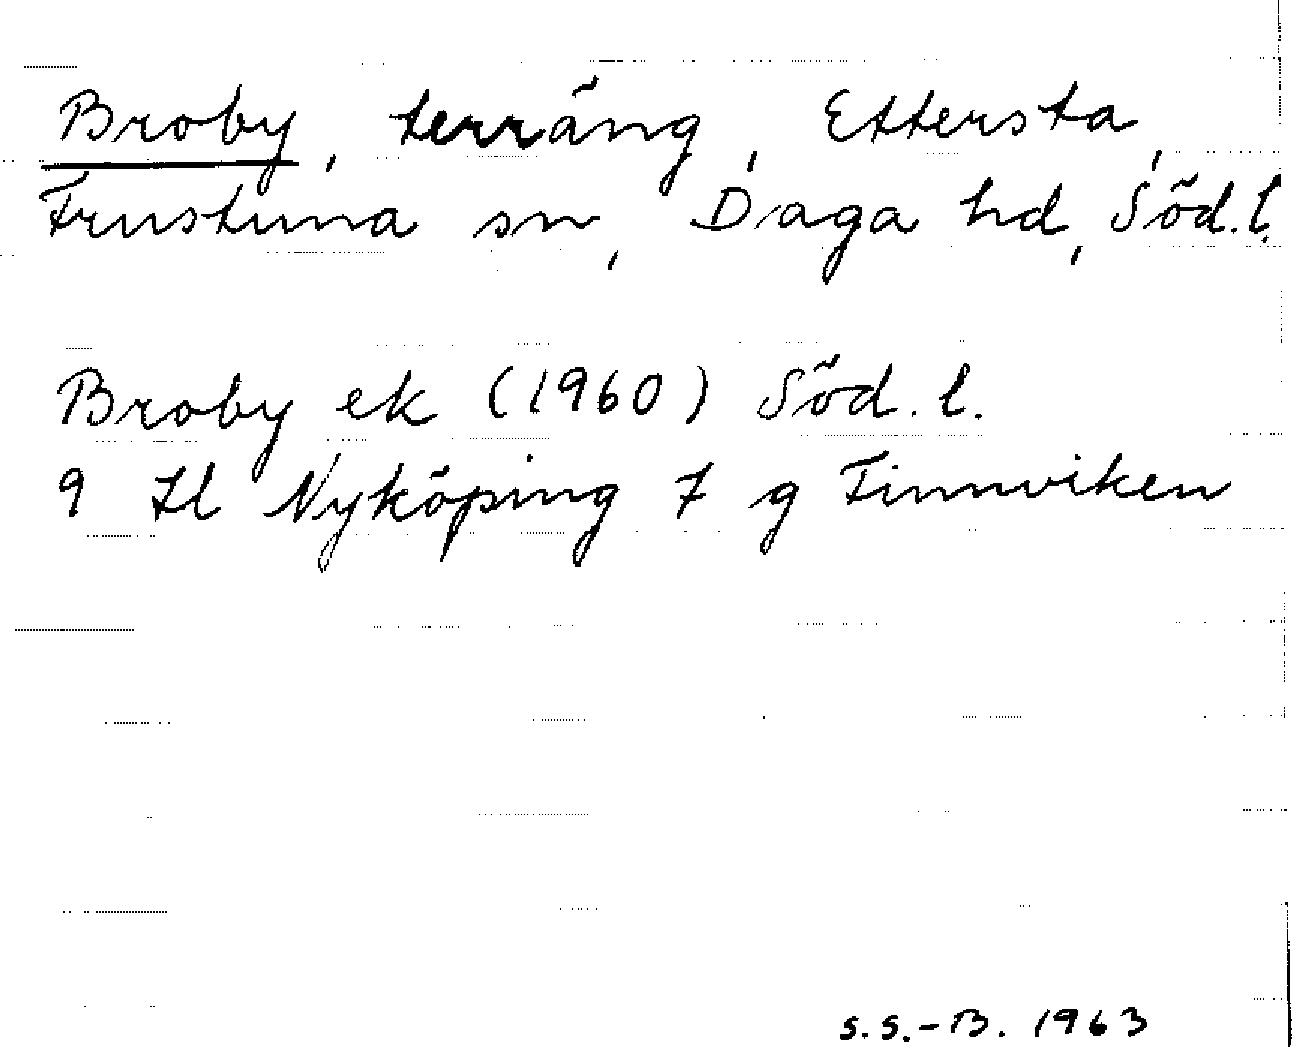 Broby, terräng, Ettersta,
Frustuna sn, Daga hd, Söd.l.
Broby ek (1960) Söd.l.
9 Il Nyköping 7 g Finnviken
S.S.-B. 1963